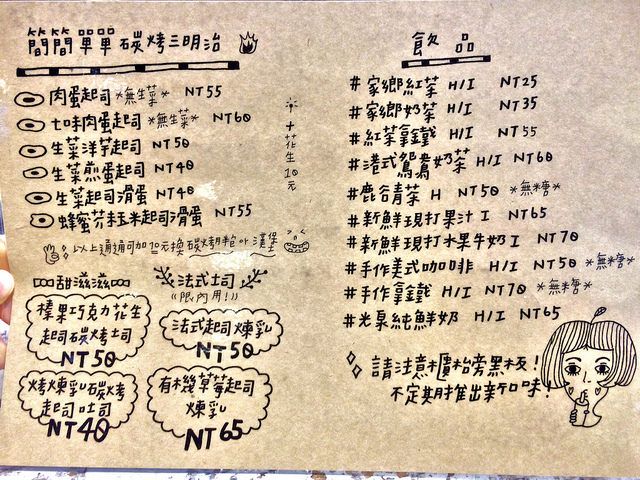 簡簡單單碳烤三明治
肉蛋起司 *無生菜* NT55
七味肉蛋起司 *無生菜* NT60
生菜洋芋起司 NT50
生菜煎蛋起司 NT40
生菜起司滑蛋 NT40
蜂蜜芥末玉米起司滑蛋 NT55
+花生10元
以上通通可加10元換碳烤麵包or漢堡
甜滋滋
榛果巧克力花生
起司碳烤吐司
NT50
烤煉乳碳烤
起司吐司
NT40
法式土司
"限內用!"
法式起司煉乳
NT50
有機草莓起司
煉乳
NT65
飲品
#家鄉紅茶 H/I NT25
#家鄉奶茶 H/I NT35
#紅茶拿鐵 H/I NT55
#港式鴛鴦奶茶 H/I NT60
#鹿谷青茶 H NT50 *無糖*
#新鮮現打果汁 I NT65
#新鮮現打水果牛奶 I NT70
#手作美式咖啡 H/I NT50 *無糖*
#手作拿鐵 H/I NT70 *無糖*
#光泉純鮮奶 H/I NT65
請注意櫃枱旁黑板!
不定期推出新口味!